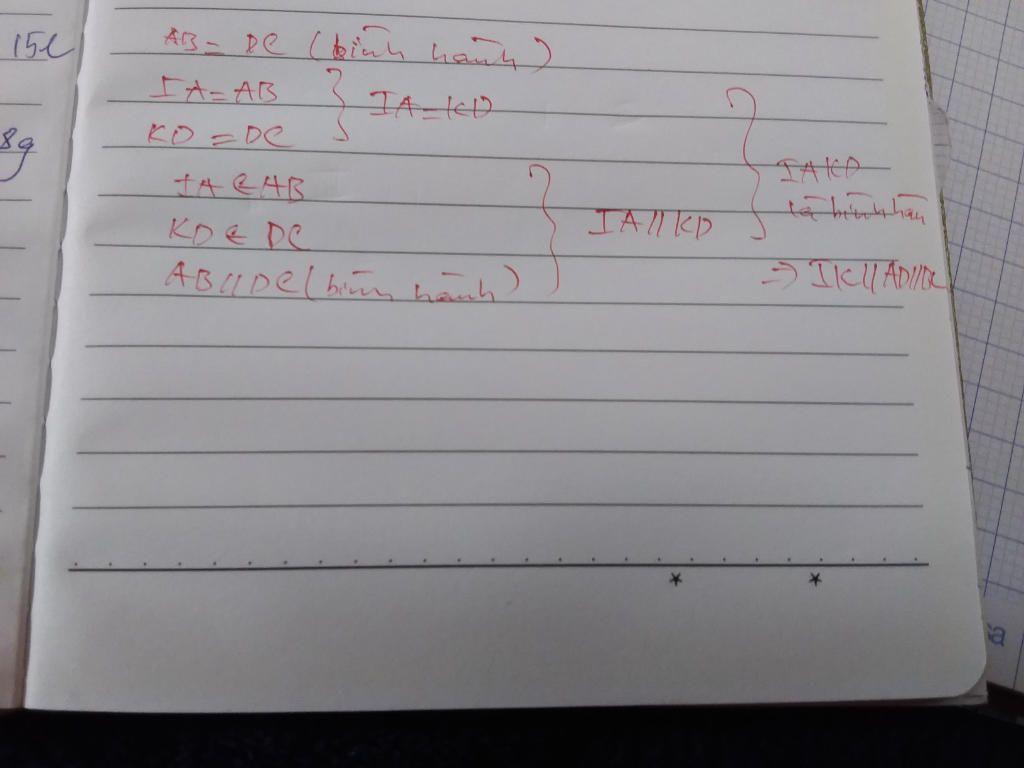 15l
AB = DC (bình hành)
IA = AB
KD = DC
IA = KD
8g
IA ∈ AB
KD ∈ DC
AB // DC (bình hành)
IA // KD
IAKD
là bình hàn
=> IK // AD // BC